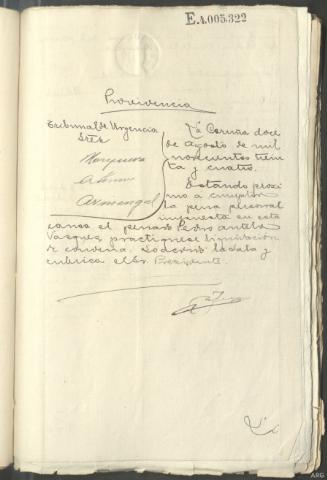 E.4.005.322
Providencia
Tribunal de Urgencia
Sres
La Coruña doce
de Agosto de mil
novecientos trein
ta y cuatro.
Estando proxi
mo a cumplir
la pena personal
impuesta en esta
causa el penado Pedro Antelo
Vazquez, practiquese liquidación
de condena. Lo acordó la Sala y
rubrica el Sr. Presidente.
ARG